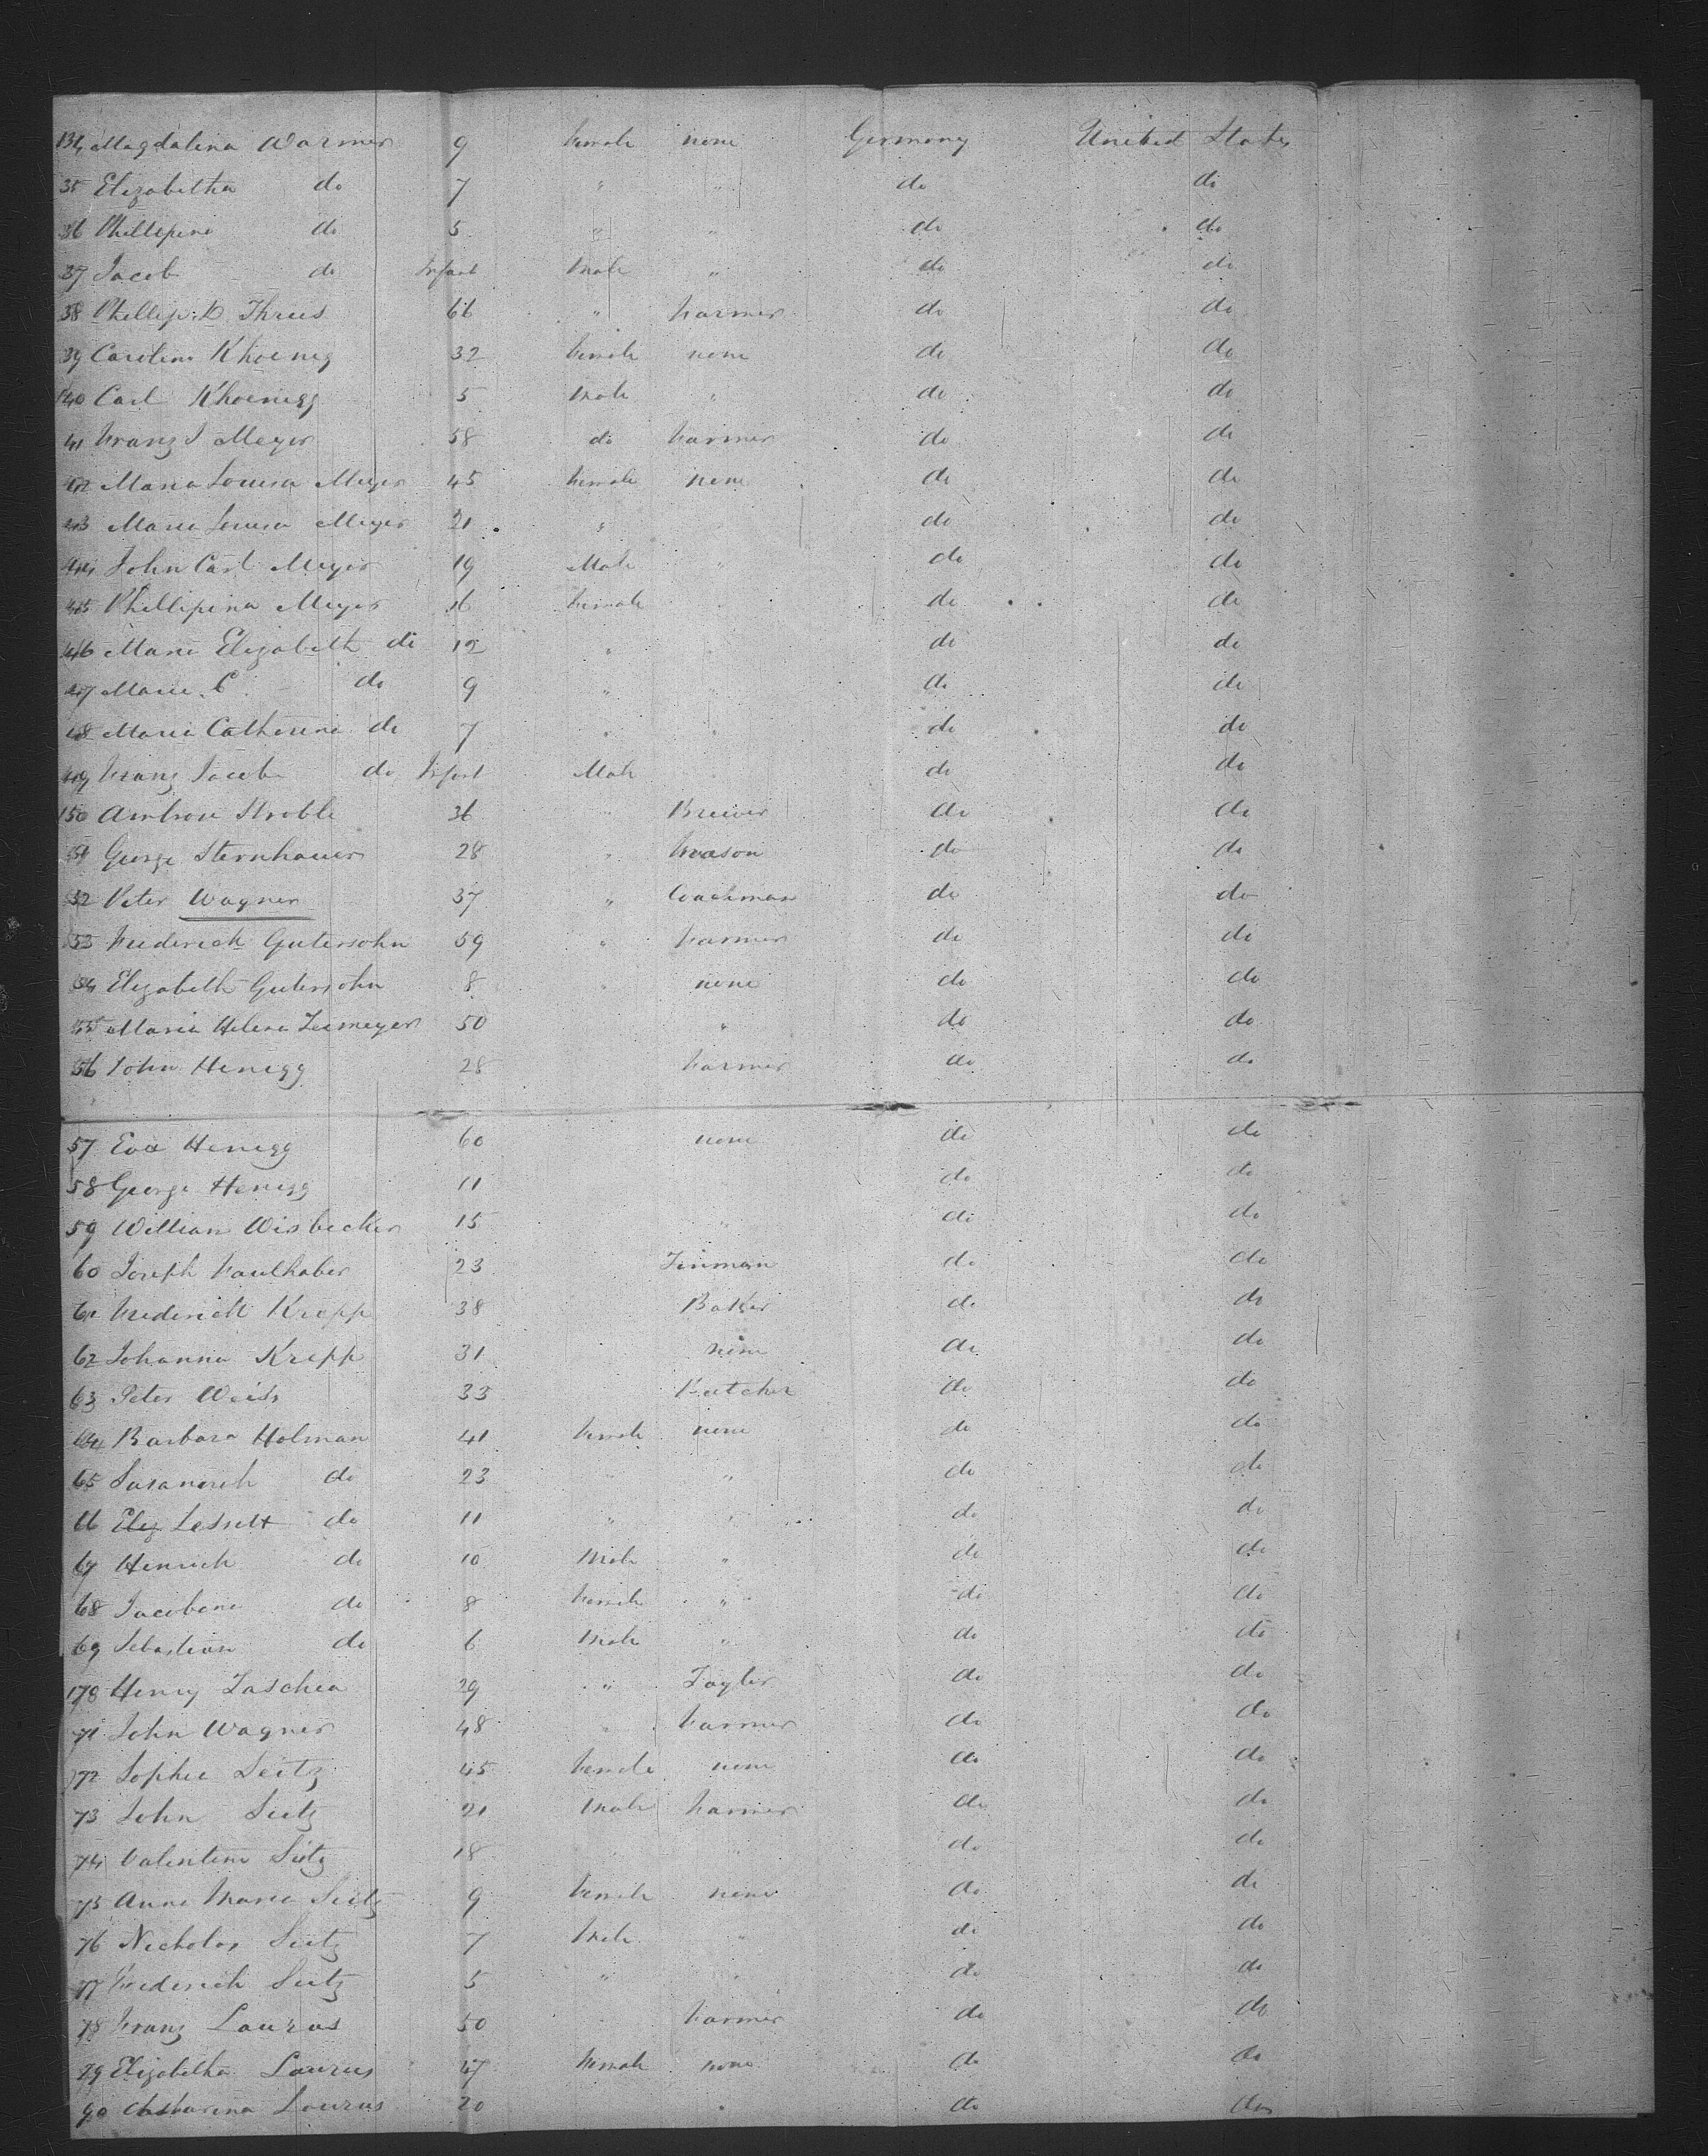 134 Magdalena Warmer 9 Female none Germany United States
35 Elizabetha do 7 " " do do
36 Phillipine do 5 " " do do
37 Jacob do Infant Male " do do
38 Phillip D Thrus 66 " Farmer do do
39 Caroline Khoenig 32 Female none do do
140 Carl Khoenigg 5 Male " do do
41 Franz J Meyer 58 do Farmer do do
42 Maria Louisa Meyer 45 Female none do do
43 Marie Louisa Meyer 21 " do do
44 John Carl Meyer 19 Male " do do
45 Phillipina Meyer 16 Female do do
46 Marie Elizabeth do 12 " do do
47 Marie C do 9 " " do do
48 Marie Catherine do 7 " " do do
49 Franz Jacob do Infant Male do do
150 Ambrose Stroble 36 " Brewer do do
51 George Sternhauer 28 " Mason do do
52 Peter Wagner 37 " Coachman do do
53 Frederick Gutersohn 59 " Farmer do do
54 Elizabeth Gutersohn 8 " none do do
55 Marie Helena Zeemeyer 50 " do do
56 John Henegg 28 Farmer do do
57 Eva Henegg 60 none do do
58 George Henegg 11 do do
59 William Wisbecker 15 " do do
60 Joseph Faulhaber 23 Tinman do do
61 Frederick Krepp 38 Baker do do
62 Johanna Krepp 31 none do do
63 Peter Weiss 33 Butcher do do
64 Barbara Holman 41 Female none do do
65 Susannah do 23 " do do
66 Eliz do 11 " " do do
67 Henrich do 10 Male " do do
68 Jacobene do 8 Female " do do
69 Sebastian do 6 Male " do do
170 Henry Taschea 29 " Taylor do do
71 John Wagner 48 " Farmer do do
72 Sophie Seitz 45 Female none do do
73 John Seitz 21 Male Farmer do do
74 Valentine Seitz 18 do do
75 Anna Marie Seitz 9 Female none do do
76 Nicholas Seitz 7 Male " do do
77 Frederich Seitz 5 " " do do
78 Franz Laurus 50 Farmer do do
79 Elizabetha Laurus 47 Female none do do
90 Catharina Laurus 20 " do do